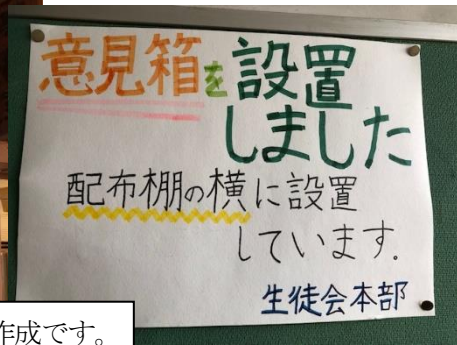 意見箱を設置
しました
配布棚の横に設置
しています.
生徒会本部
作成です。